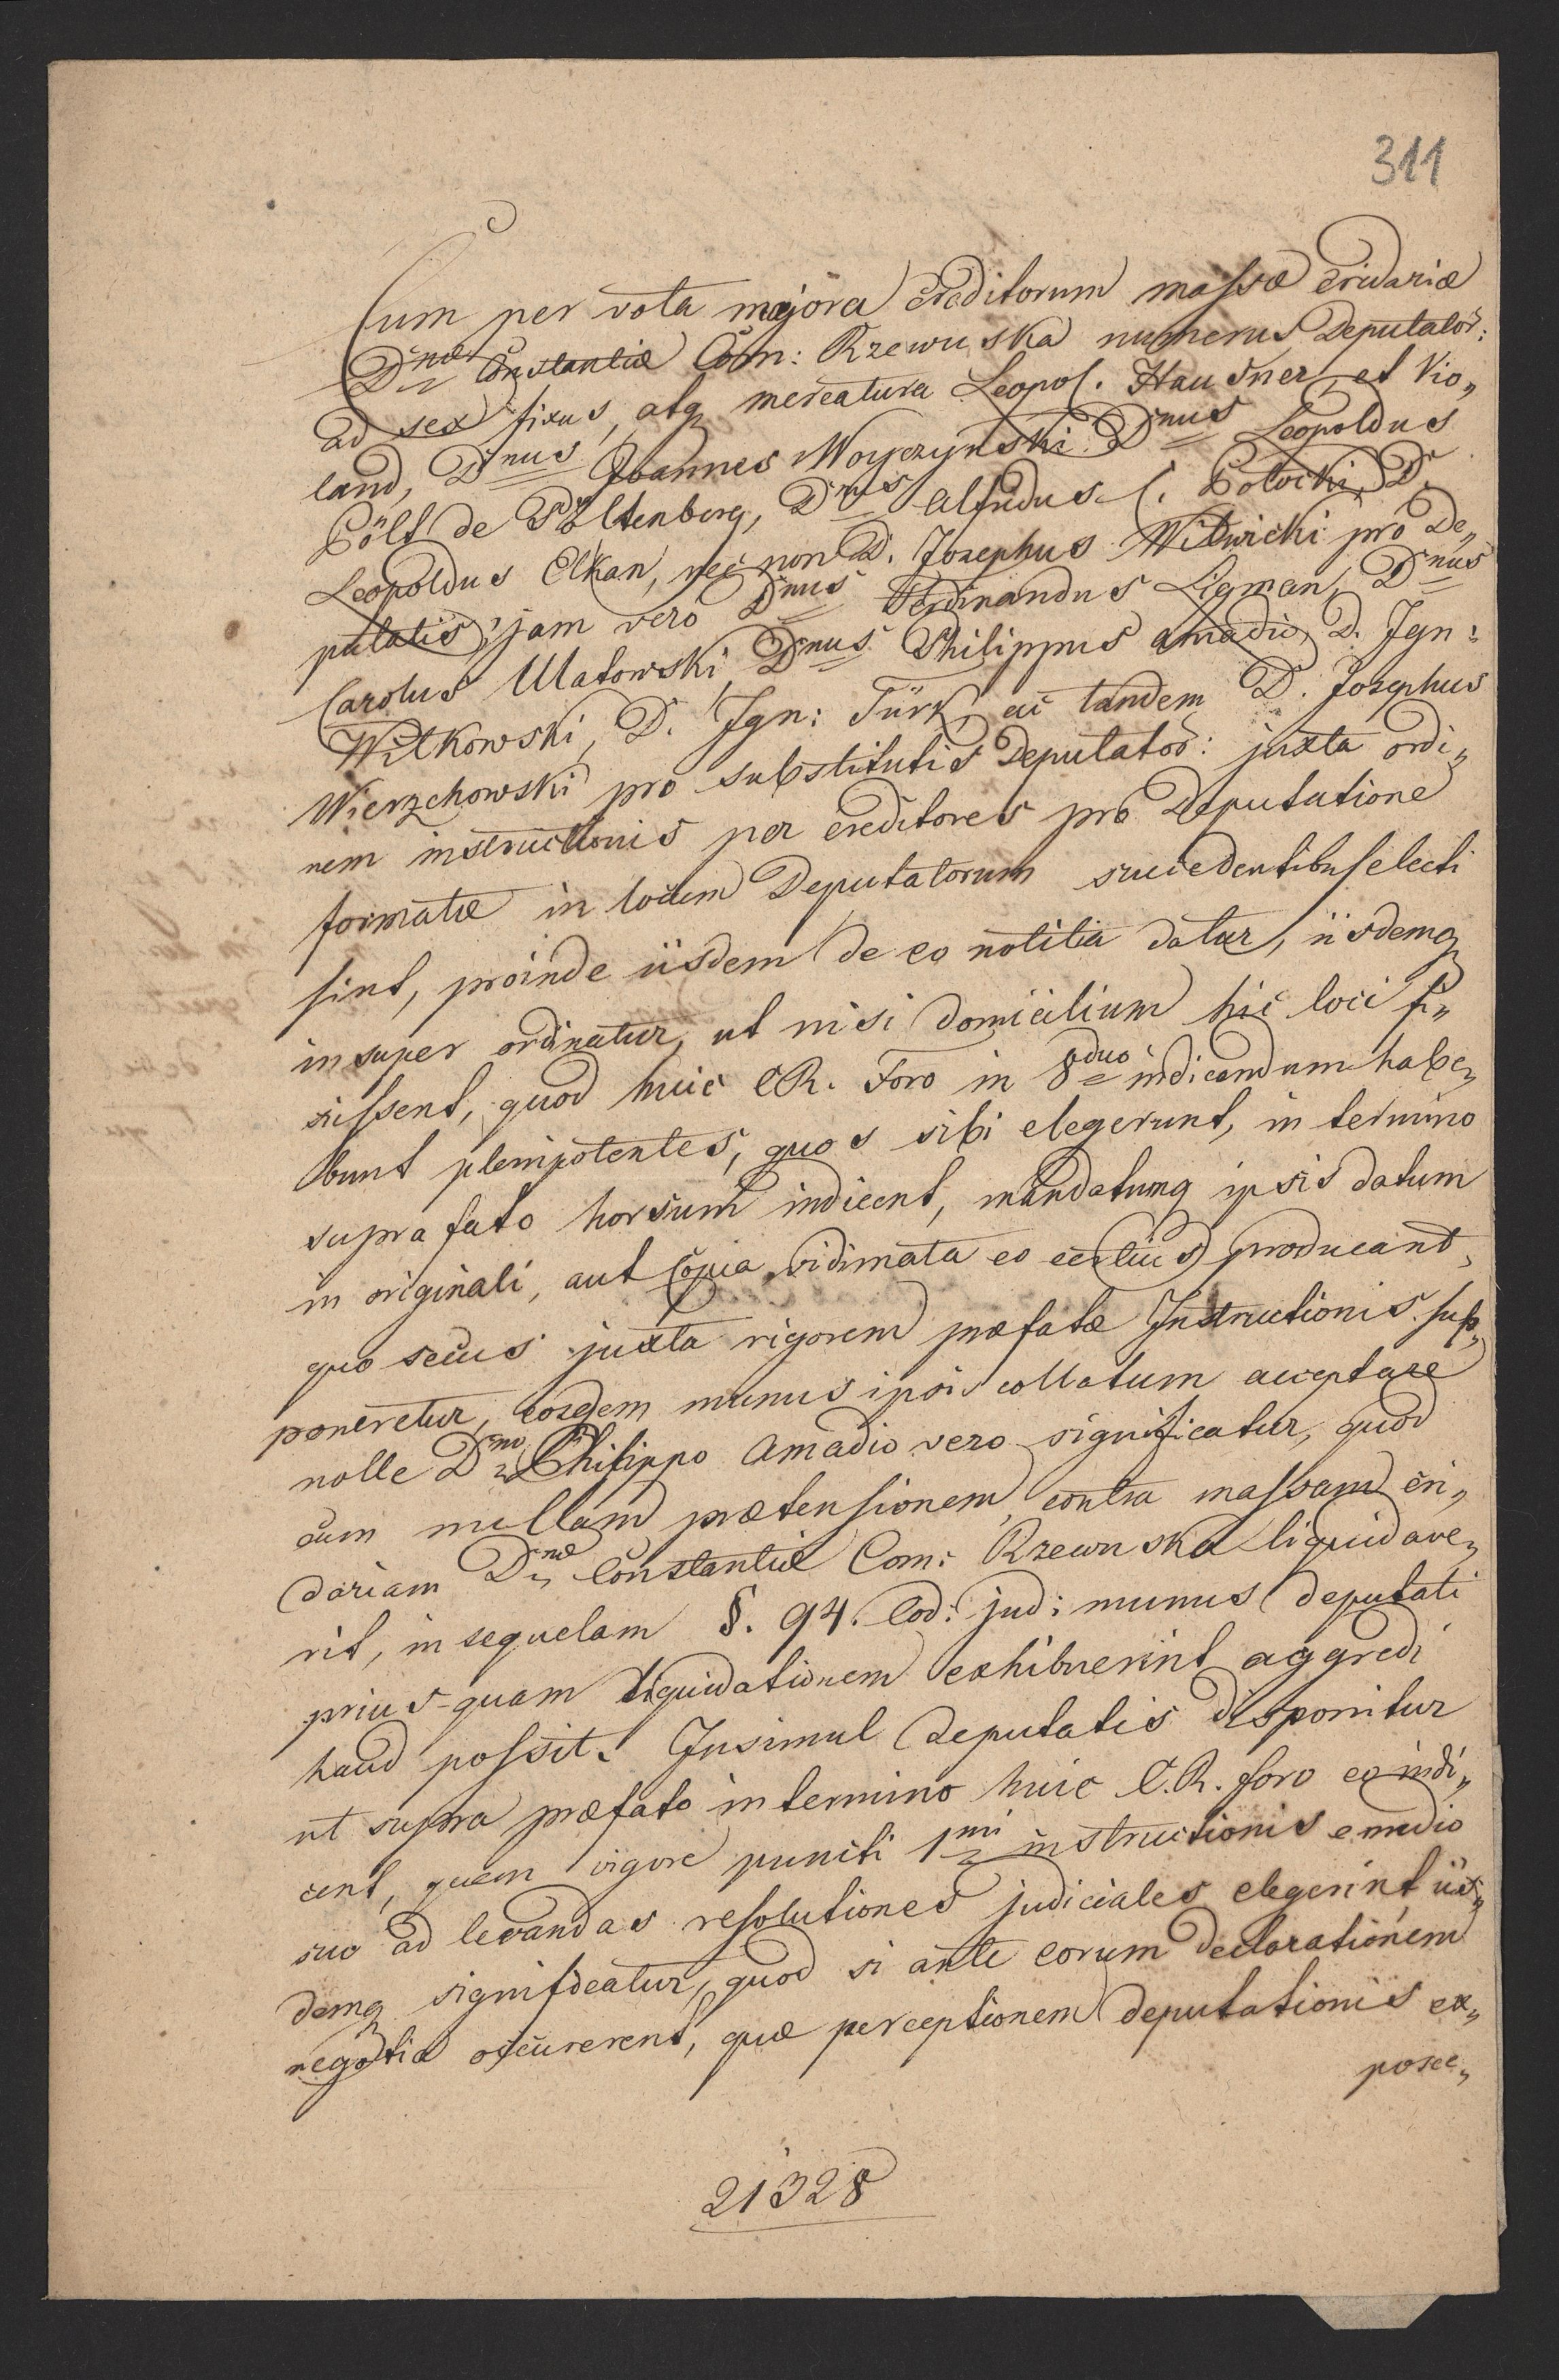 311
Cum per vota majora Creditorum massæ cridariæ
Dnæ Constantiæ Com: Rzewuska numerus Deputator:
ad sex fixus, atq mercatura Leopol. Hausner et Vio„
land, Dnus Joannes Woyczynski Dnus Leopoldus
Pölt de Pöltenberg, Dnus Alfridus C. Potocki, D.
Leopoldus Elkan, nec non D. Josephus Witwicki pro De„
putatis, jam vero Dnus Ferdinandus Ligman, Dnus
Carolus Ulatowski, Dnus Philippus Amadio, D. Ign:
Witkowski, D. Ign: Türk, ac tandem D. Josephus
Wierzchowski pro substitutis Deputator: juxta ordi„
nem instructionis per creditores pro Deputatione
formatæ in locum Deputatorum succedentibus electi
sint, proinde iisdem de eo notitia datur, iisdemq
insuper ordinatur, ut nisi domicilium hic loci fi„
xissent, quod huic C.R. Foro in 8duo indicandum habe„
bunt plenipotentes, quos sibi elegerunt, in termino
supra fato horsum indicent, mandatumq ipsis datum
in originali, aut copia vidimata eo certius producant,
quo secus juxta rigorem præfatæ Instructionis sup„
poneretur, eosdem munus ipsis collatum acceptare
nolle Dno Philippo Amadio vero significatur, quod
cum nullam prætensionem contra massam cri„
dariam Dnæ Constantiæ Com: Rzewuska liquidave„
rit, in sequelam §. 94. Cod: jud: munus deputati
prius quam liquidationem exhibuerint aggredi
haud possit. Insimul Deputatis disponitur
ut supra præfato in termino huic C.R. foro eo indi„
cent, quem vigore puncti 1mi instructionis e medio
suo ad levandas resolutiones judiciales elegerint iis„
demq significatur, quod si ante eorum declarationem
negotia occurerent, quæ perceptionem deputationis ex„
posce„
21328